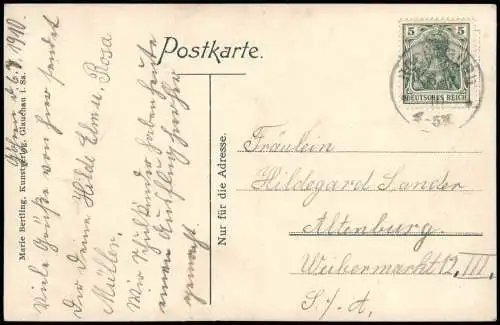 Postkarte.
5 5
DEUTSCHES REICH
Fräulein
Hildegard Sander
Altenburg.
Weibermarkt 12, III.
S./A.
Nur für die Adresse.
Marie Bertling, Kunstverlag, Glauchau i. Sa.
d. 6. 7. 1910.
Viele Grüße von hier sendet
Dir Deine Hilde Elmse. Rosa
Müller.
Wir Schulkinder haben heute
einen Ausflug hierher
gemacht.